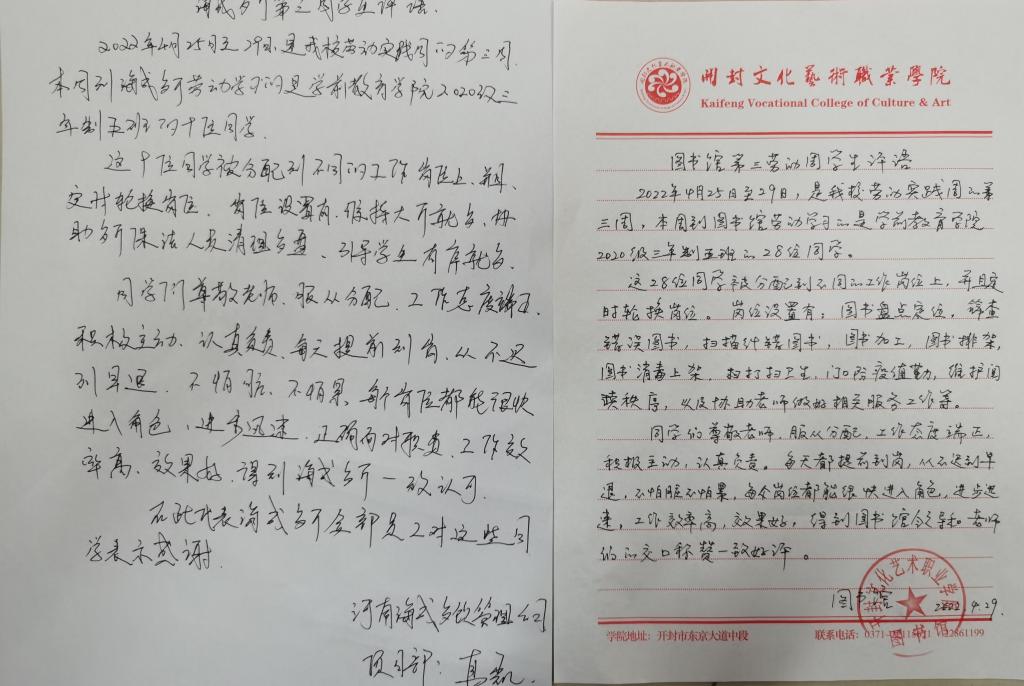 海成乡厅第三周学生评语.
2022年4月25日至29日.是我校劳动实践周的第三周.
本周到海成乡厅劳动学习的是学前教育学院2020级三
年制五班的十位同学.
这十位同学被分配到不同的工作岗位上,并且、
定时轮换岗位. 岗位设置有.维持大厅
助 保洁人员清理 、引导学生有序
同学们尊敬老师、服从分配、工作态度端正
积极主动、认真负责、每天提前到岗、从不迟
到早退. 不怕脏、不怕累、每个岗位都能很快
进入角色、进步迅速、正确面对 、工作效
率高、效果好、得到海成 一致认可.
在此代表海成 全部员工对这些同
学表示感谢.
河南海成 管理公司
项目部:
開封文化藝術職業學院
Kaifeng Vocational College of Culture & Art
图书馆第三劳动周学生评语
2022年4月25日至29日,是我校劳动实践周的第
三周,本周到图书馆劳动学习的是学前教育学院
2020级三年制五班的28位同学。
这28位同学被分配到不同的工作岗位上,并且定
时轮换岗位。岗位设置有:图书盘点定位,筛查
错误图书,扫描纠错图书,图书加工,图书排架,
图书消毒上架,扫打扫卫生,门口防疫值勤,维护阅
读秩序,以及协助老师做好相关服务工作等。
同学的尊敬老师,服从分配,工作态度端正,
积极主动,认真负责。每天都提前到岗,从不迟到早
退,不怕脏不怕累,每个岗位都能很快进入角色,进步迅
速,工作效率高,效果好,得到图书馆领导和老师
们的交口称赞一致好评。
图书馆 2022.4.29.
开封文化艺术职业学院
图书馆
学院地址:开封市东京大道中段 联系电话:0371- 22861199